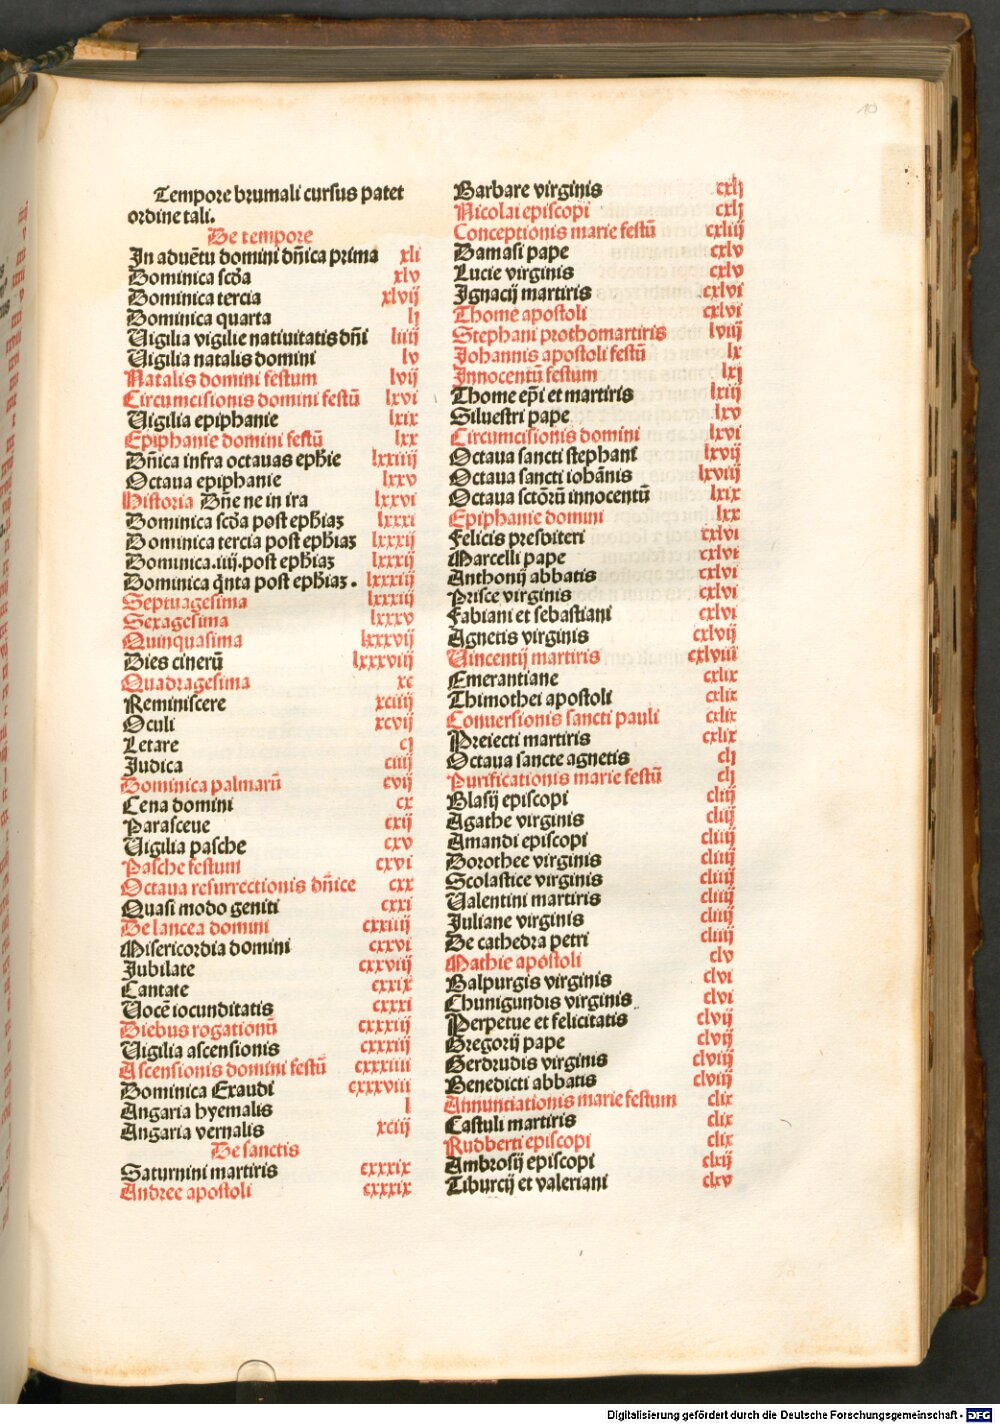 10
Tempore brumali cursus patet
ordine tali.
De tempore
In aduētu domini dn̄ica prima xli
Dominica scd̄a xlv
Dominica tercia xlvij
Dominica quarta lj
Uigilia vigilie natiuitatis dn̄i liiij
Uigilia natalis domini lv
Natalis domini festum lvij
Circumcisionis domini festū lxvi
Uigilia epiphanie lxix
Epiphanie domini festū lxx
Dn̄ica infra octauas eph̄ie lxxiiij
Octaua epiphanie lxxv
Historia Dn̄e ne in ira lxxvi
Dominica scd̄a post eph̄iaꝫ lxxxi
Dominica tercia post eph̄iaꝫ lxxxij
Dominica.iiij.post eph̄iaꝫ lxxxij
Dominica qn̄ta post eph̄iaꝫ. lxxxiij
Septuagesima lxxxiij
Sexagesima lxxxv
Quinquasima lxxxvij
Dies cinerū lxxxviij
Quadragesima xc
Reminiscere xciiij
Oculi xcvij
Letare cj
Judica ciiij
Dominica palmarū cvij
Cena domini cx
Parasceue cxij
Uigilia pasche cxv
Pasche festum cxvi
Octaua resurrectionis dn̄ice cxx
Quasi modo geniti cxxi
De lancea domini cxxiiij
Misericordia domini cxxvi
Jubilate cxxviij
Cantate cxxix
Uocē iocunditatis cxxxi
Diebus rogationū cxxxiij
Uigilia ascensionis cxxxiij
Ascensionis domini festū cxxxiiii
Dominica Exaudi cxxxviii
Angaria hyemalis l
Angaria vernalis xciij
De sanctis
Saturnini martiris cxxxix
Andree apostoli cxxxix
Barbare virginis cxlj
Nicolai episcopi cxlj
Conceptionis marie festū cxliij
Damasi pape cxlv
Lucie virginis cxlv
Ignacij martiris cxlvi
Thome apostoli cxlvi
Stephani prothomartiris lviij
Johannis apostoli festū lx
Innocentū festum lxj
Thome ep̄i et martiris lxiij
Siluestri pape lxv
Circumcisionis domini lxvi
Octaua sancti stephani lxvij
Octaua sancti ioh̄anis lxviij
Octaua sctōrū innocentū lxix
Epiphanie domini lxx
Felicis presbiteri cxlvi
Marcelli pape cxlvi
Anthonij abbatis cxlvi
Prisce virginis cxlvi
Fabiani et sebastiani cxlvi
Agnetis virginis cxlvij
Uincentij martiris cxlviii
Emerantiane cxlix
Thimothei apostoli cxlix
Conuersionis sancti pauli cxlix
Preiecti martiris cxlix
Octaua sancte agnetis clj
Purificationis marie festū clj
Blasij episcopi cliij
Agathe virginis cliij
Amandi episcopi cliiij
Dorothee virginis cliiij
Scolastice virginis cliiij
Ualentini martiris cliiij
Juliane virginis cliiij
De cathedra petri cliiij
Mathie apostoli clv
Balpurgis virginis clvi
Chunigundis virginis clvi
Perpetue et felicitatis clvij
Gregorij pape clvij
Gerdrudis virginis clviij
Benedicti abbatis clviij
Annunciationis marie festum clix
Castuli martiris clix
Rudberti episcopi clix
Ambrosij episcopi clxij
Tiburcij et valeriani clxv
Digitalisierung gefördert durch die Deutsche Forschungsgemeinschaft - DFG